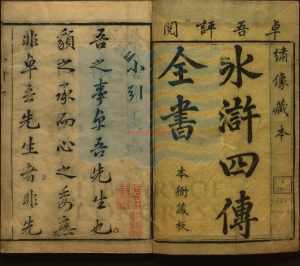 卓吾評閱
繡像藏本
水滸四傳
全書
本衙藏板
小引
吾之事卓吾先生也
貌之承而心之委無
非卓吾先生者非先